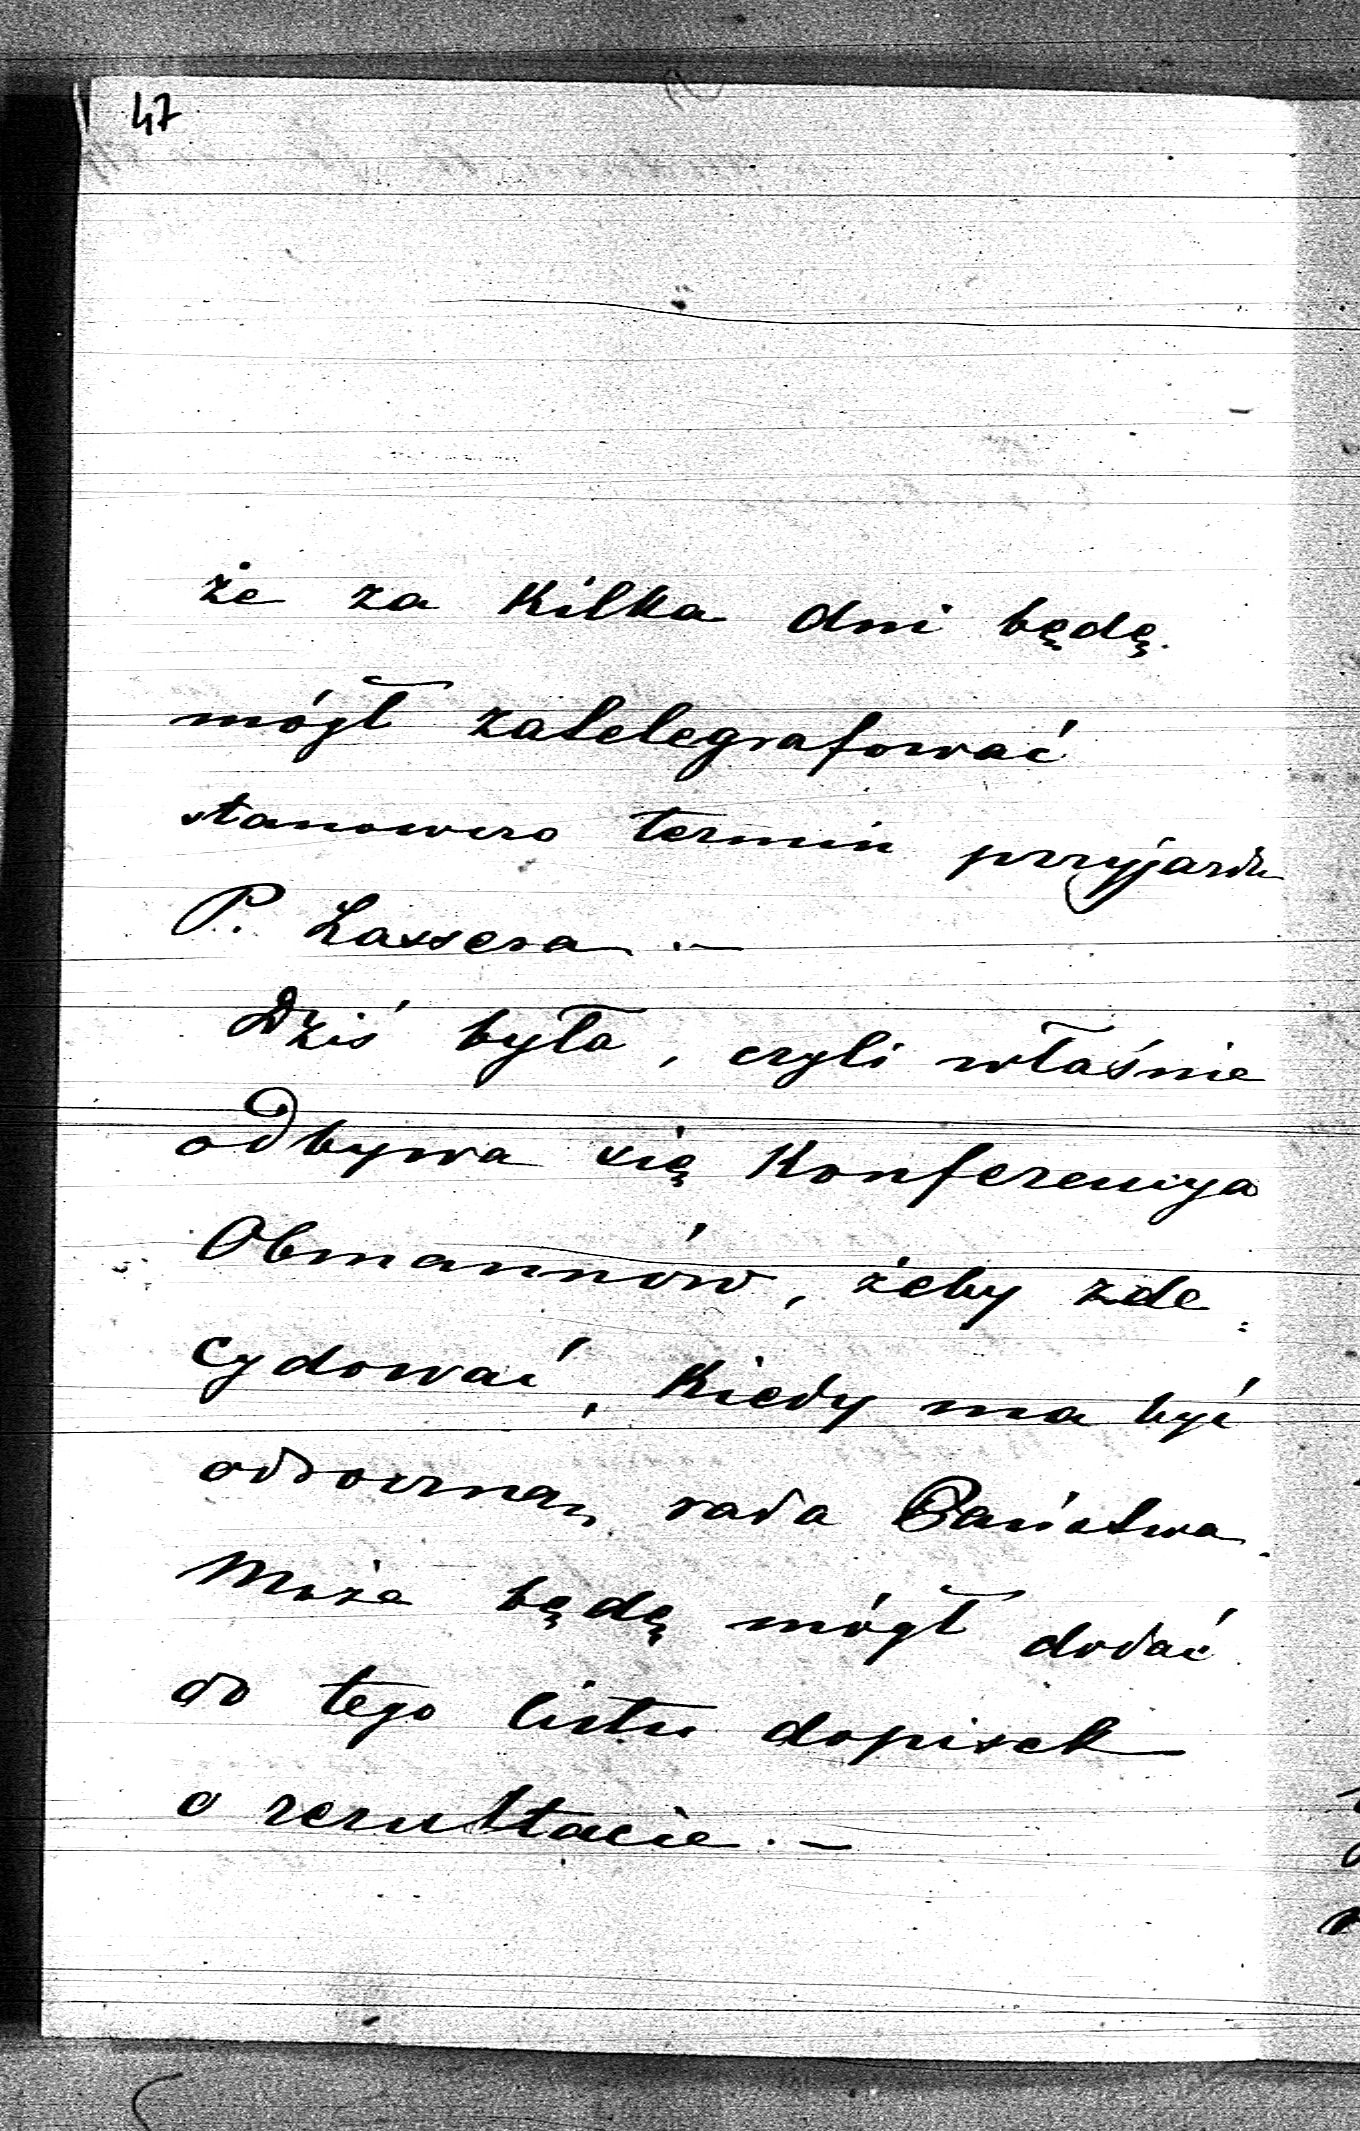 47
że za kilka dni będę
mógł zatelegrafować
stanowczo termin przyjazdu
P. Lassera. —
Dziś była, czyli właśnie
odbywa się Konferencya
Obmannów, żeby zde=
cydować, kiedy ma być
odroczną rada Państwa.
Może będę mógł dodać
do tego listu dopisek
o rezultacie. —